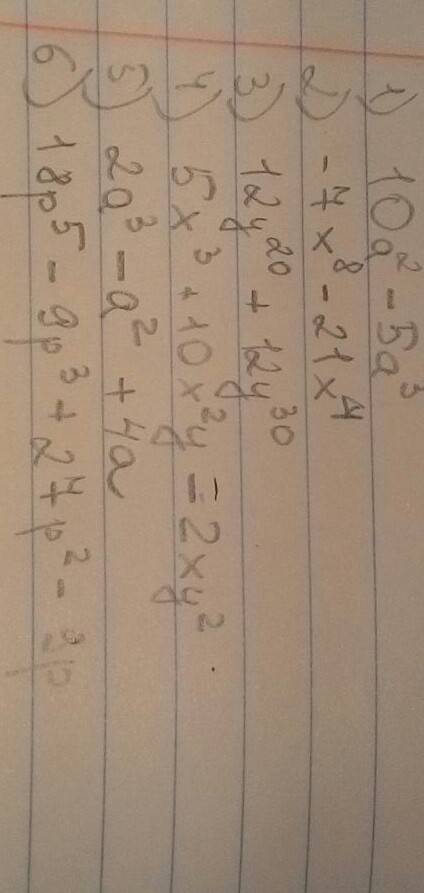 1) 10a² - 5a³
2) -7x⁸ - 21x⁴
3) 12y²⁰ + 12y³⁰
4) 5x³ + 10x²y = 2xy².
5) 2a³ - a² + 4a
6) 18p⁵ - 9p³ + 27p² - 3p